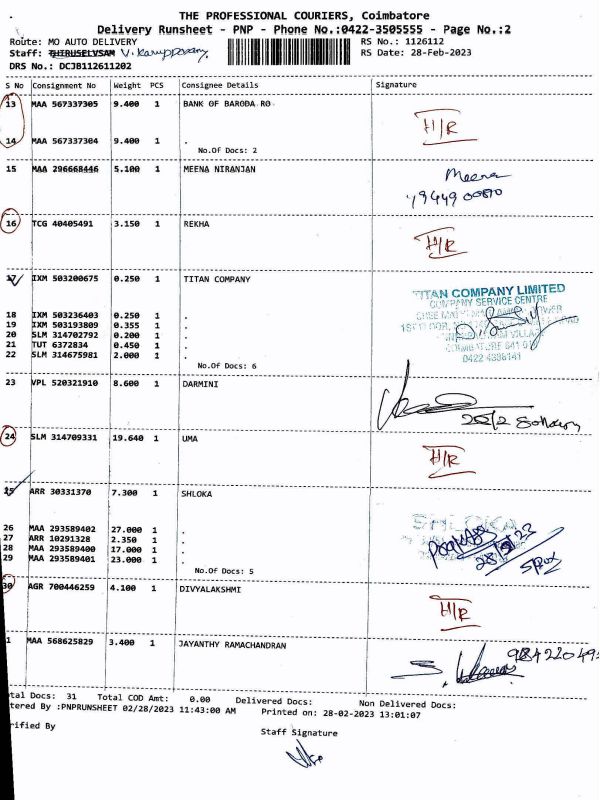 THE PROFESSIONAL COURIERS, Coimbatore
Delivery Runsheet - PNP - Phone No.:0422-3505555 - Page No.:2
Route: MO AUTO DELIVERY RS No.: 1126112
Staff: THIRUSELVSAM V. Karuppasamy RS Date: 28-Feb-2023
DRS No.: DCJB112611202
S No Consignment No Weight PCS Consignee Details Signature
13 MAA 567337305 9.400 1 BANK OF BARODA RO
H/R
14 MAA 567337304 9.400 1 .
No.Of Docs: 2
15 MAA 296668446 5.100 1 MEENA NIRANJAN
Meena
16 TCG 40405491 3.150 1 REKHA
H/R
17 IXM 503200675 0.250 1 TITAN COMPANY
TITAN COMPANY LIMITED
COMPANY SERVICE CENTRE
18 IXM 503236403 0.250 1 .
19 IXM 503193809 0.355 1 .
20 SLM 314702792 0.200 1 .
21 TUT 6372834 0.450 1 .
22 SLM 314675981 2.000 1 .
0422 4398141
No.Of Docs: 6
23 VPL 520321910 8.600 1 DARMINI
24 SLM 314709331 19.640 1 UMA
H/R
25 ARR 30331370 7.300 1 SHLOKA
SHLOKA
26 MAA 293589402 27.000 1 .
27 ARR 10291328 2.350 1 .
28 MAA 293589400 17.000 1 .
29 MAA 293589401 23.000 1 .
No.Of Docs: 5
30 AGR 700446259 4.100 1 DIVYALAKSHMI
H/R
1 MAA 568625829 3.400 1 JAYANTHY RAMACHANDRAN
tal Docs: 31 Total COD Amt: 0.00 Delivered Docs: Non Delivered Docs:
tered By :PNPRUNSHEET 02/28/2023 11:43:00 AM Printed on: 28-02-2023 13:01:07
rified By
Staff Signature